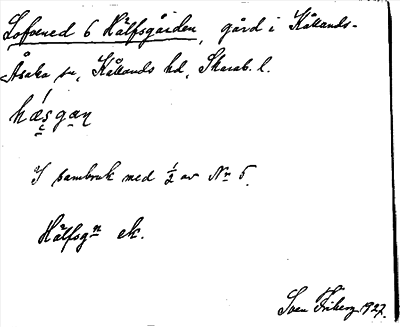 Lofsened 6 Hälfsgården, gård i Kållands-
Åsaka sn, Kållands hd, Skarab. l.
hǽsgaṇ
I sambruk med ½ av Nr 5.
Hälfsgn ek.
Sven Friberg 1927.